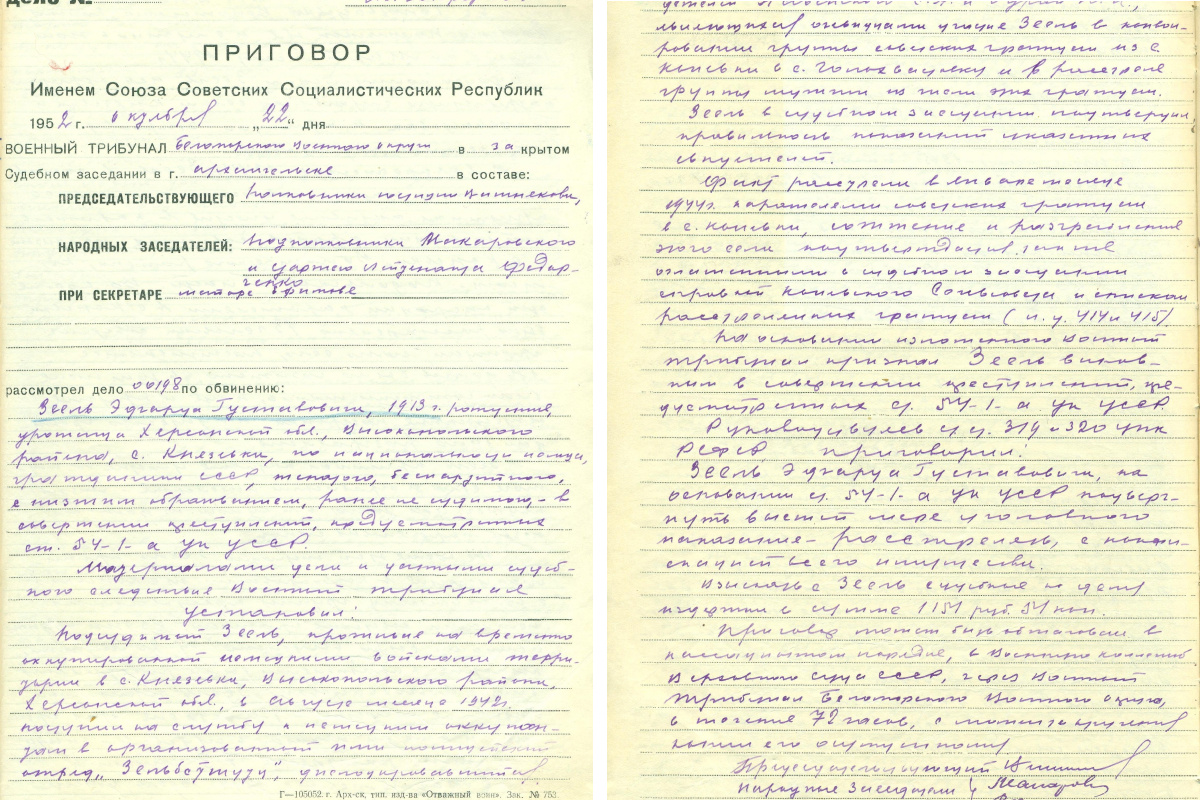 Дело №
ПРИГОВОР
Именем Союза Советских Социалистических Республик
1952 г. октября „22“ дня
ВОЕННЫЙ ТРИБУНАЛ Беломорского Военного округа в закрытом
Судебном заседании в г. Архангельске в составе:
ПРЕДСЕДАТЕЛЬСТВУЮЩЕГО Полковника юстиции
НАРОДНЫХ ЗАСЕДАТЕЛЕЙ: подполковника Макаровского
и старшего лейтенанта Федор-
ченко
ПРИ СЕКРЕТАРЕ майоре Ефимове
рассмотрел дело 00198 по обвинению:
Зеель Эдгарда Густавовича, 1913 г. рождения,
уроженца Херсонской обл., Высокопольского
района, с. Князевки, по национальности немца,
гражданина СССР, женатого, беспартийного,
с низшим образованием, ранее не судимого, - в
совершении преступлений, предусмотренных
ст. 54-1-а УК УССР.
Материалами дела и данными судеб-
ного следствия Военный трибунал
установил:
Подсудимый Зеель, проживая на временно
оккупированной немецкими войсками терри-
тории в с. Князевка, Высокопольского района,
Херсонской обл., в августе месяце 1942г.
поступил на службу к немецким оккупан-
там в организованный ими полицейский
отряд „Зельбстшутц“, дислоцировавшийся
Г—105052. г. Арх-ск, тип. изд-ва «Отважный воин». Зак. № 753.
являющихся очевидцами участия Зеель в конвои-
ровании группы советских граждан из с.
в с. и в расстреле
группы мужчин из числа этих граждан.
Зеель в судебном заседании подтвердил
правильность показаний указанных
свидетелей.
Факт расстрела в январе месяце
1944г. карателями советских граждан
в с. сожжение и разграбление
этого села подтверждается также
оглашенными в судебном заседании
справкой сельсовета и списком
расстрелянных граждан (л. д. 414 и 415).
На основании изложенного Военный
трибунал признал Зеель винов-
ным в совершении преступлений, пре-
дусмотренных ст. 54-1-а УК УССР
Руководствуясь ст. ст. 319 и 320 УПК
РСФСР приговорил:
Зеель Эдгарда Густавовича, на
основании ст. 54-1-а УК УССР подверг-
нуть высшей мере уголовного
наказания - расстрелять, с конфи-
скацией всего имущества.
Взыскать с Зеель судебные по делу
издержки в сумме 1151 руб. 51 коп.
Приговор может быть обжалован в
кассационном порядке, в Военную коллегию
Верховного суда СССР, через Военный
трибунал Беломорского Военного округа,
в течение 72 часов, с момента вручения
копии его осужденному
Председательствующий
Народные заседатели